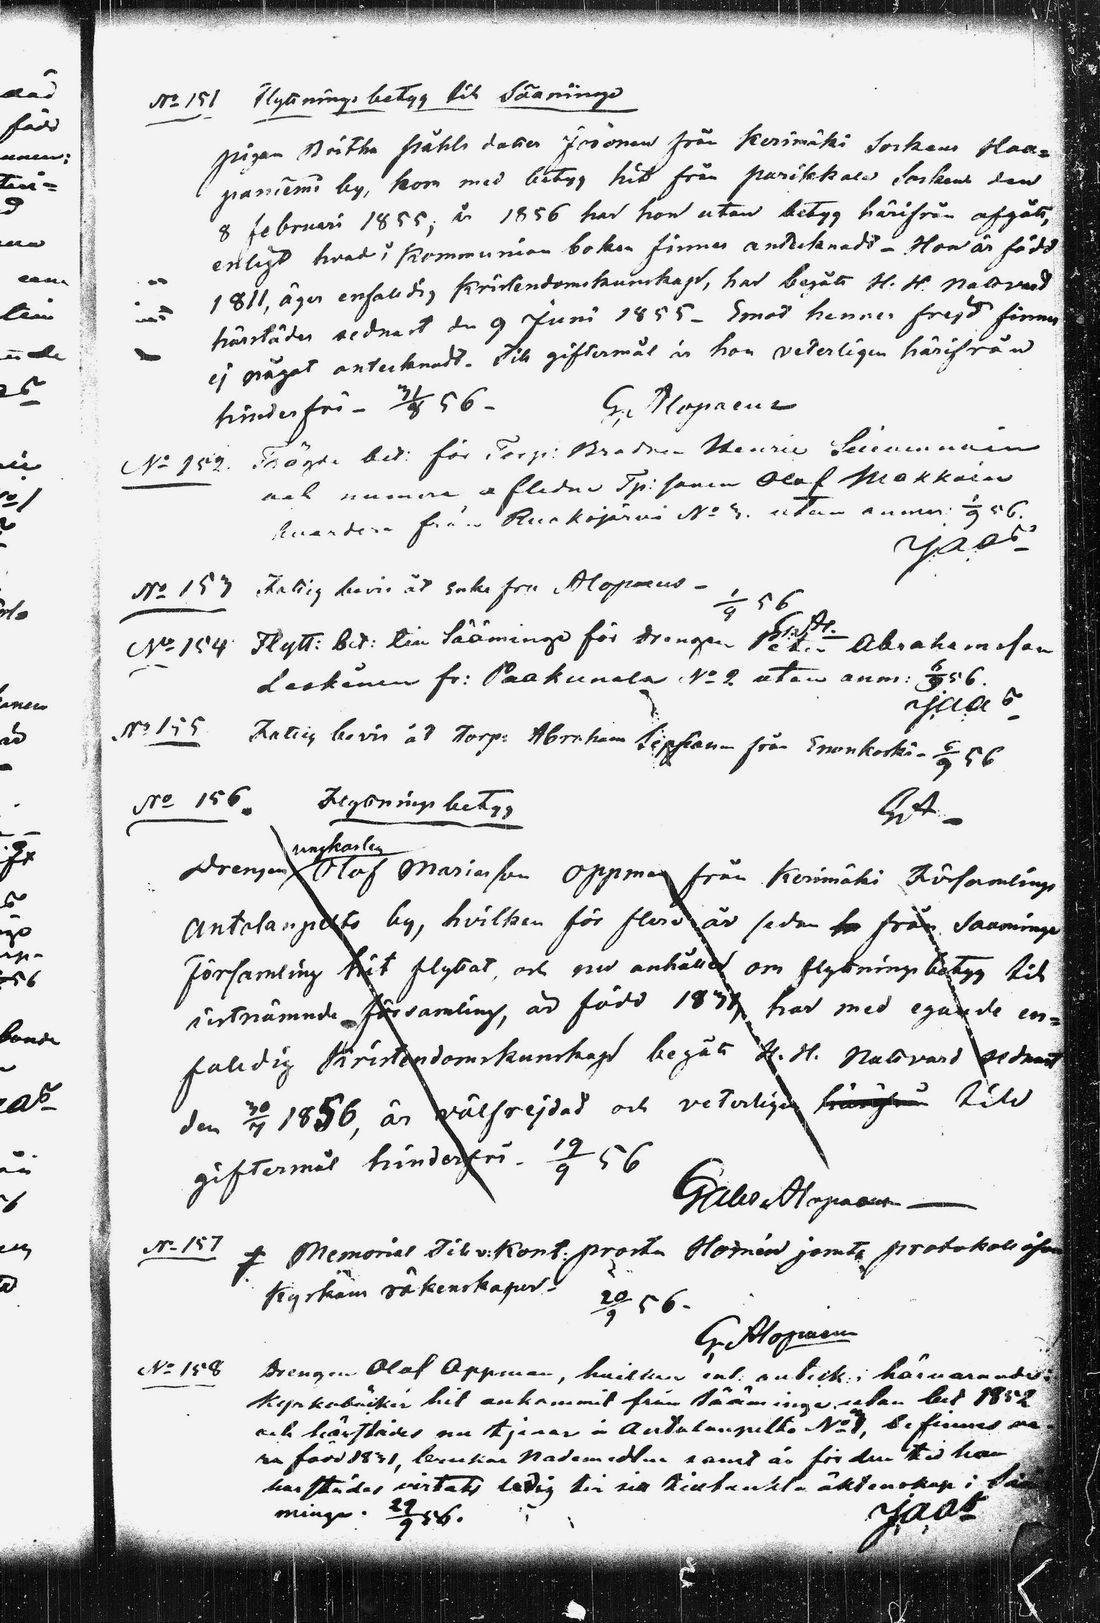 No 151 Flyttningsbetyg till Sääminge
pigan Britha Påhls dotter Jrsonen från Kerimäki Sockens Haa=
paniemi by, kom med betyg hit från parikkala Socken den
8 februari 1855; år 1856 har hon utan betyg härifrån afgått,
enligt hvad i Kommunion boken finnes antecknadt - Hon är född
1811, äger enfaldig kristendomskunskap, har begått H. H. Nattvard
härstädes sednast den 9 Juni 1855 - Emot hennes frejd finnes
ej något antecknadt. Till giftermål är hon veterligen härifrån
hinderfri - 31/8 56 - G. Alopaeus
No 152. bet: för Torp: Henric
och numera aflidne Tp: sonen Olof Makkoin
från Ruokojärvi No 3. utan anmer: 1/9 56.
No 153 Fattig bevis åt Enke fru Alopaeus -
1/9 56
G. A.
No 154 Flytt: bet: till Sääminge för drengen Petter Abrahamsson
Leskinen fr: Paakunala No 2 utan anm: 6/9 56.
No 155 Fattig bevis åt Torp: Abraham från Enonkoski - 6/9 56
G. A.
No 156. Flyttnings betyg
ungkarlen
Drengen Olof Mariasson Oppman från Kerimäki Församlings
Antolanpelto by, hvilken för flera år sedan från Sääminge
församling hit flyttat, och nu anhållit om flyttnings betyg till
sistnämnde församling, är född 1831, har med egande en=
faldig Kristendomskunskap begått H. H. Nattvard sednast
den 30/7 1856, är välfrejdad och veterligen härifrån till
giftermål hinderfri - 19/9 56
Gabr. Alopaeus
No 157 Memorial Till v: Kont: prosten Hornén jemte protokoll öfver
Kyrkans räkenskaper - 20/9 56 -
G. Alopaeus
No 158 Drengen Olof Oppman, hvilken enl: anteck: i härvarande
Kyrkoböcker hit ankommit från Sääminge utan bet 1852
och härstädes nu tjenar i Antolanpelto No 1, befinnes va-
ra född 1831, brukar Nademedlen samt är för den tid han
härstädes vistats ledig till sitt tillärnade äktenskap i Sää
minge. 29/9 56.